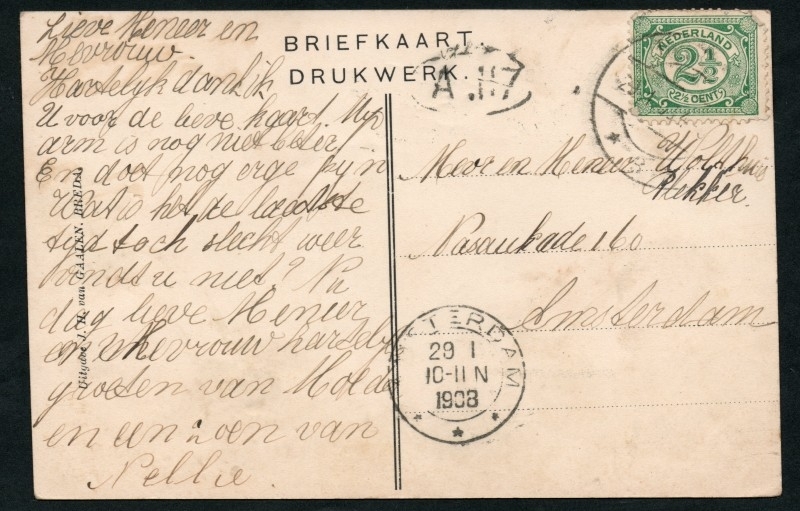 Lieve Meneer en
Mevrouw.
Hartelyk dank ik
U voor de lieve kaart. Myn
arm is nog niet beter
En doet nog erge pyn
Wat is het de laatste
tyd toch slecht weer
vondt u niet? Nu
dag lieve Meneer
en Mevrouw hartelyk
groeten van Moeder
en een zoen van
Nellie.
Uitgave J. H. van GAALEN, BREDA
BRIEFKAART.
DRUKWERK.
A.117
NEDERLAND
2½
(2½ CENT)
Mevr en Meneer
Bekker.
Nasaukade 160
Amsterdam
AMSTERDAM
29 1
10-11 N
1908